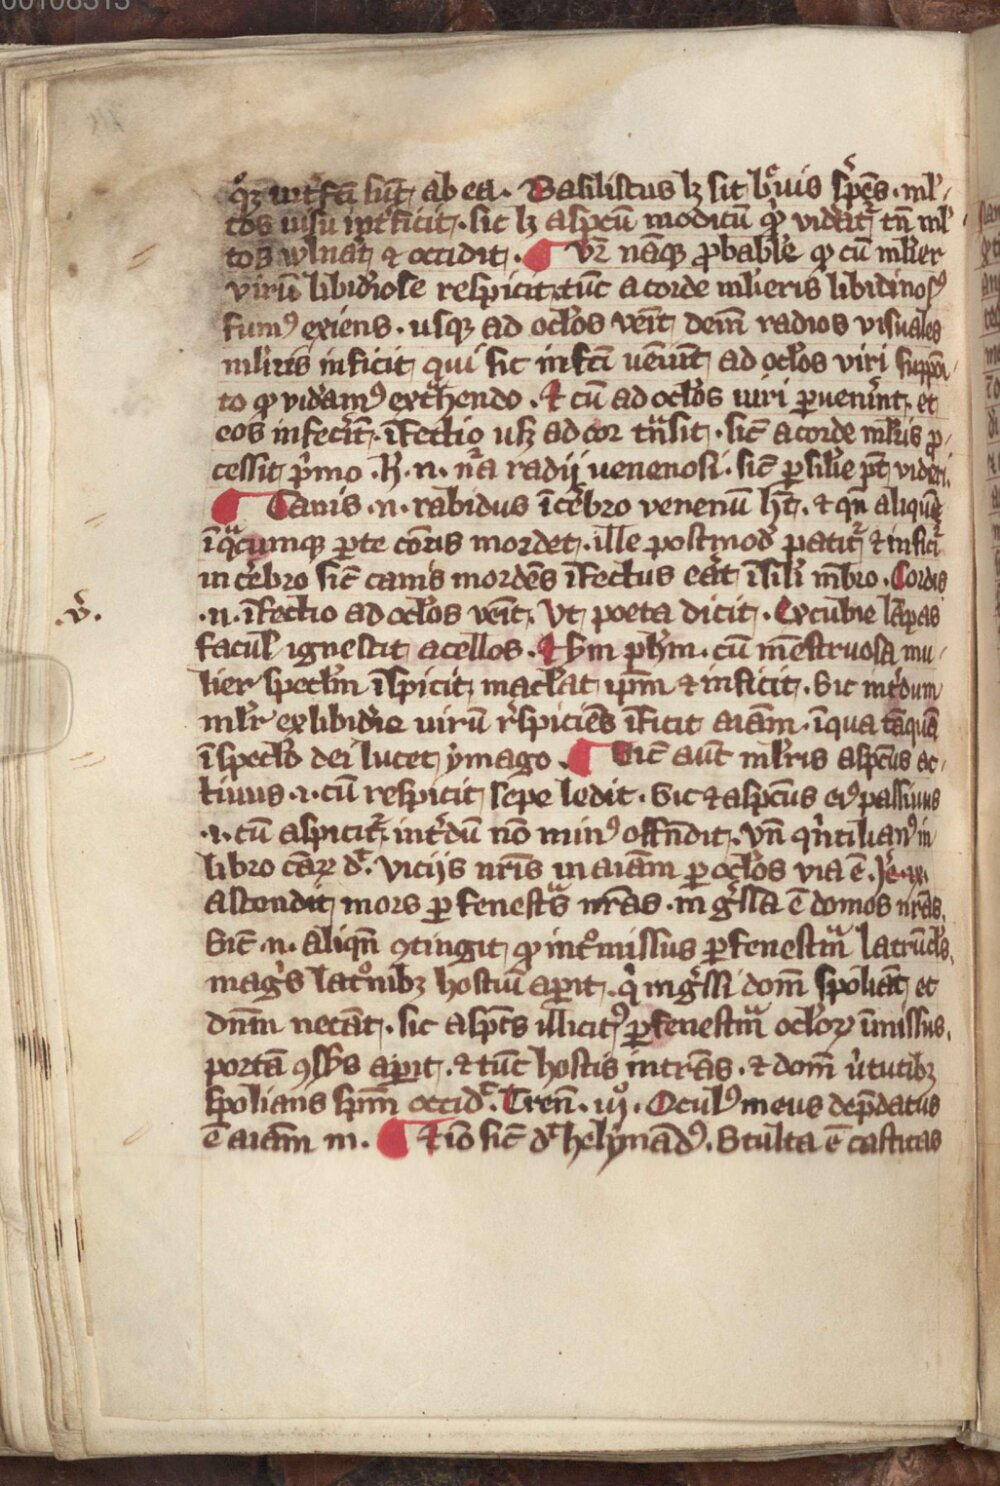 00108313
q̊ꝫ int͛fc̄i sūt ab ea. Basiliscus lꝫ sit b͛uis sp̄es. ml̄-
tos uisu int͛ficit. sic lꝫ asp̄cū modicū ꝙ vid̄at͛ tn̄ ml̄-
tos wln̄at ⁊ occidit. ¶ Vr̄ nāqꝫ ꝓbabl̄e ꝙ cū ml̄ier
virū libid̄iose respicit. tūc a corde ml̄ieris libidinosꝰ
fumꝰ exiens. usqꝫ ad ocl̄os veīt. dem̄ radios visuales
ml̄iris inficit qui sic infc̄i uēiūt ad ocl̄os viri supp̄oi-
to ꝙ vid̄amꝰ ext͛hendo. Et cū ad ocl̄os uiri ꝑuenīnt. et
eos infec̄it. īfectio usqꝫ ad cor tn̄sit. sic̄ a corde ml̄ris ꝓ-
cessit p͛mo. H̄. n. n̄ra radij uenenosi. sic̄ ꝑ sil̄ie pt̄ videri.
¶ Canis. n. rabidus ī c͛ebro venenū hꝫt. ⁊ qn̄ aliquē
ī qͣcumqꝫ ꝑte corꝑis mordet. ille postmod̄ patit͛ ⁊ inficit͛
in c͛ebro sic̄ canis mordēs īfectus eāt ī sil̄i mb̄ro. Cordis
.n. īfectio ad ocl̄os veīt. Vt poeta dicit. Excubie lāpas
.v̄.
facul̄ ignescit acellos. Et sm̄ ph̄m. cū mēstruosa mu-
lier specl̄m īspicit. macl̄at ip̄m ⁊ inficit. Sic int͛dum
ml̄r ex libidīe uirū r͛spiciēs īficit aīam. ī qua tāquā
ī specl̄o dei lucet ymago. ¶ Sic̄ aūt ml̄ris asp̄cus ac-
tiuus .i. cū respicit sepe ledit. Sic ⁊ asp̄cus eiꝰ passiuus
.i. cū aspicit͛. int͛dū nō minꝰ offn̄dit. Vn̄ q͛ntilianꝰ in
libro cāꝝ d͛. viciis nr̄is in aīam ꝑ ocl̄os via ē. Je͛. ix.
ascendit mors ꝑ fenestͣs nr̄as. ingr͛ssa ē domos nr̄as.
Sic̄ .n. aliqn̄ ꝯtingit ꝙ int͛missus ꝑ fenestͣm latrūcl̄s.
mag͛s lat͛onibꝫ hostiū aꝑit. q͛ ingr͛ssi dom̄ spoliāt et
dn̄m necāt. sic asp̄cs illicitꝰ ꝑ fenestͣm ocl̄oꝝ īmissus.
portā ꝯsēs̄ aꝑit. ⁊ tūc hostis intrās. ⁊ dom̄ u͛tutibꝫ
spolians sp̄m occid͛. Tren̄. iij. Ocul̄ꝰ meus dep̄datus
ē aīam m. ¶ Et iō sic̄ d͛ helymādꝰ. Stulta ē castitas